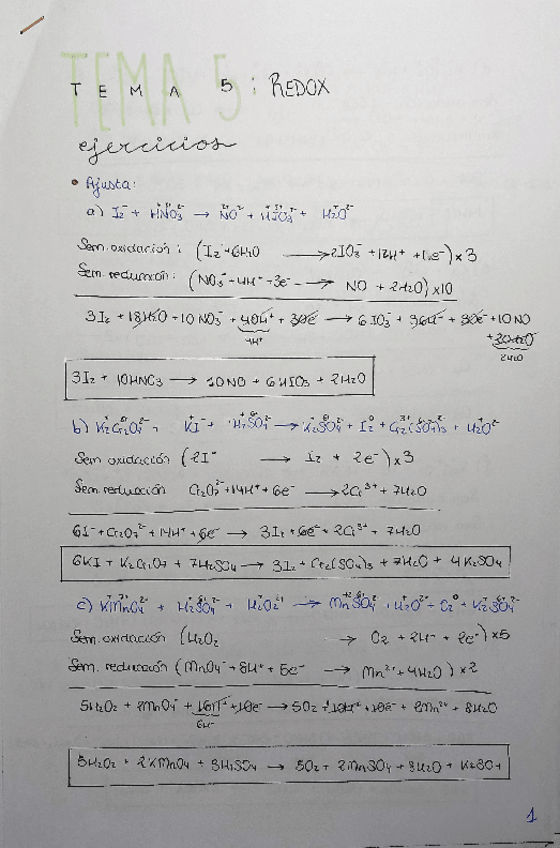 TEMA 5: REDOX
ejercicios
• Ajusta:
a) I₂ + HNO₃ → NO + HIO₃ + H₂O
Sem. oxidación: (I₂ + 6H₂O → 2IO₃⁻ + 12H⁺ + 10e⁻) × 3
Sem. reducción: (NO₃⁻ + 4H⁺ + 3e⁻ → NO + 2H₂O) × 10
3I₂ + 18H₂O + 10NO₃⁻ + 40H⁺ + 30e⁻ → 6IO₃⁻ + 36H⁺ + 30e⁻ + 10NO
+ 20H₂O
4H⁺ 2H₂O
3I₂ + 10HNO₃ → 10NO + 6HIO₃ + 2H₂O
b) K₂Cr₂O₇ + KI + H₂SO₄ → K₂SO₄ + I₂ + Cr₂(SO₄)₃ + H₂O
Sem oxidación (2I⁻ → I₂ + 2e⁻) × 3
Sem. reducción Cr₂O₇²⁻ + 14H⁺ + 6e⁻ → 2Cr³⁺ + 7H₂O
6I⁻ + Cr₂O₇²⁻ + 14H⁺ + 6e⁻ → 3I₂ + 6e⁻ + 2Cr³⁺ + 7H₂O
6KI + K₂Cr₂O₇ + 7H₂SO₄ → 3I₂ + Cr₂(SO₄)₃ + 7H₂O + 4K₂SO₄
c) KMnO₄ + H₂SO₄ + H₂O₂ → MnSO₄ + H₂O + O₂ + K₂SO₄
Sem. oxidación (H₂O₂ → O₂ + 2H⁺ + 2e⁻) × 5
Sem. reducción (MnO₄⁻ + 8H⁺ + 5e⁻ → Mn²⁺ + 4H₂O) × 2
5H₂O₂ + 2MnO₄⁻ + 16H⁺ + 10e⁻ → 5O₂ + 10H⁺ + 10e⁻ + 2Mn²⁺ + 8H₂O
6H⁺
5H₂O₂ + 2KMnO₄ + 3H₂SO₄ → 5O₂ + 2MnSO₄ + 8H₂O + K₂SO₄
1